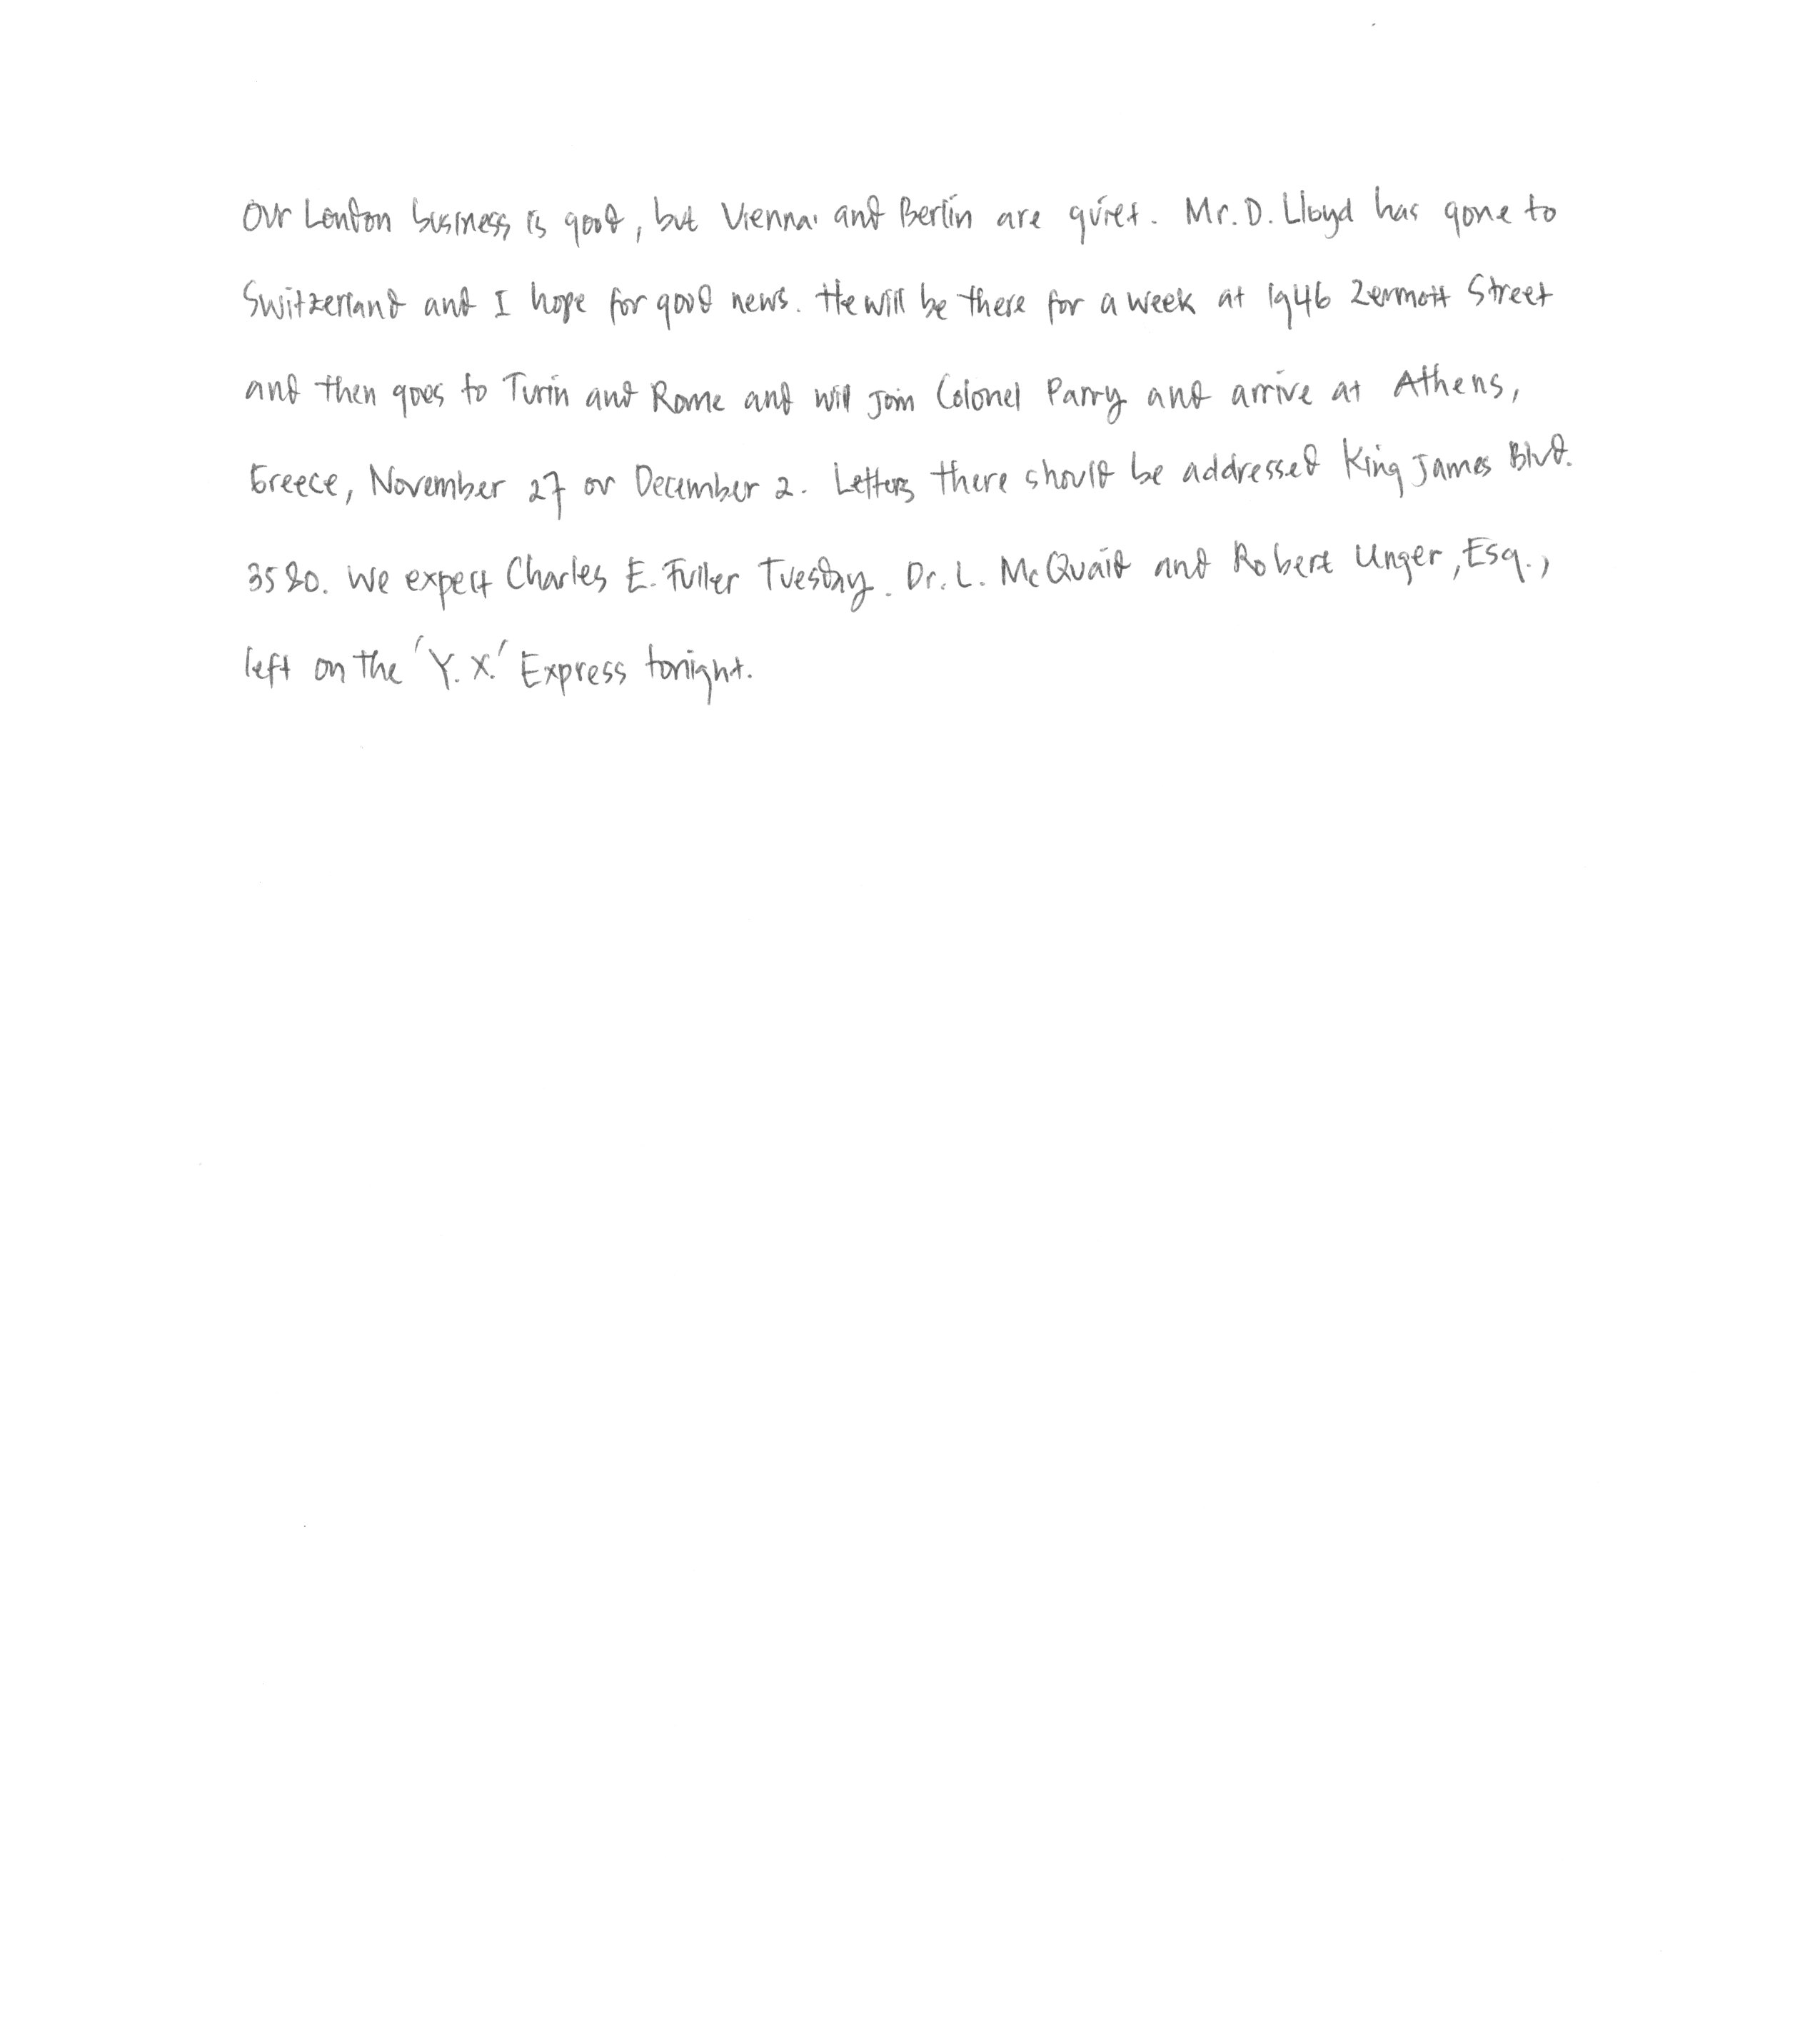 Our London business is good, but Vienna and Berlin are quiet. Mr. D. Lloyd has gone to
Switzerland and I hope for good news. He will be there for a week at 1946 Zermott Street
and then goes to Turin and Rome and will join Colonel Parry and arrive at Athens,
Greece, November 27 or December 2. Letters there should be addressed King James Blvd.
3580. We expect Charles E. Fuller Tuesday. Dr. L. McQuaid and Robert Unger, Esq.,
left on the 'Y.X.' Express tonight.